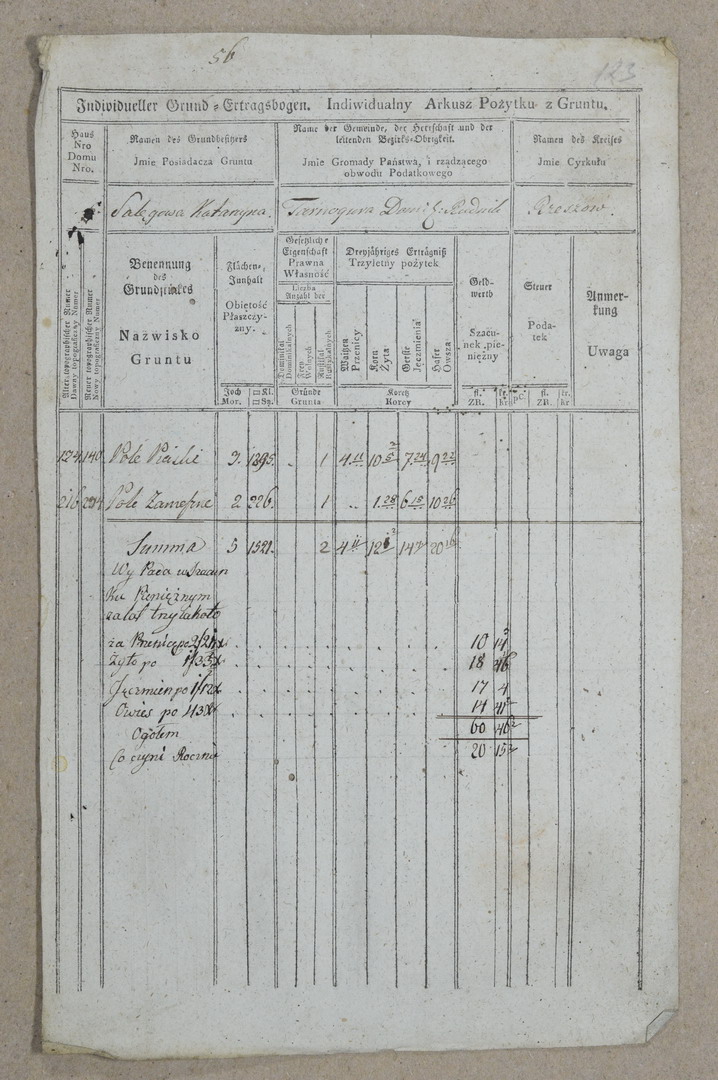 56
123
Individueller Grund-Ertragsbogen. Indiwidualny Arkusz Pożytku z Gruntu.
Haus Nro Domu Nro.
Namen des Grundbesitzers
Jmie Posiadacza Gruntu
Name der Gemeinde, der Herrschaft und der
leitenden Bezirks-Obrigkeit.
Jmie Gromady Państwa, i rządzącego
obwodu Podatkowego
Namen des Kreises
Jmie Cyrkułu
Salęgowa Katarzyna.
Tarnogura Rudnik
Rzeszow.
Alter topographischer Numer
Dawny topograficzny Numer
Neuer topographischer Numer
Nowy topograficzny Numer
Benennung
des
Grundstückes
Nazwisko
Gruntu
Flächen-
Innhalt
Obiętość
Płaszczy-
zny.
Joch □Kl.
Mor. □Są.
Gesetzliche
Eigenschaft
Prawna
Własność
Liczba
Anzahl der
Dominikal
Dominikalnych
Frey
Wolnych
Rustikal
Rustykalnych
Gründe
Grunta
Dreyjähriges Erträgniß
Trzyletny pożytek
Waitzen
Przenicy
Korn
Żyta
Gerste
Jęczmienia
Hafer
Owsa
Koretz
Korcy
Geld-
werth
Szacu-
nek pie-
niężny
fl. kr.
ZR. kr
Steuer
Poda-
tek
pC. fl. kr.
ZR. kr
Anmer-
kung
Uwaga
124 140 Pole Piaski 3. 1295. 1 4 11 10 5 7 24 9 22
216 Pole 2 226. 1 1. 28 6 18 10 26
Summa 5 1521. 2 4 11 12 14 20 16
Wy Pada w Szacun
Ku Pieniężnym
zalat trzy
za 10 14
Żyto po 1/33x 18 46
Jęczmien po 1/12x 17 4
Owies po 43x 14 41
Ogołem 60 46
Co czyni Rocznie 20 15